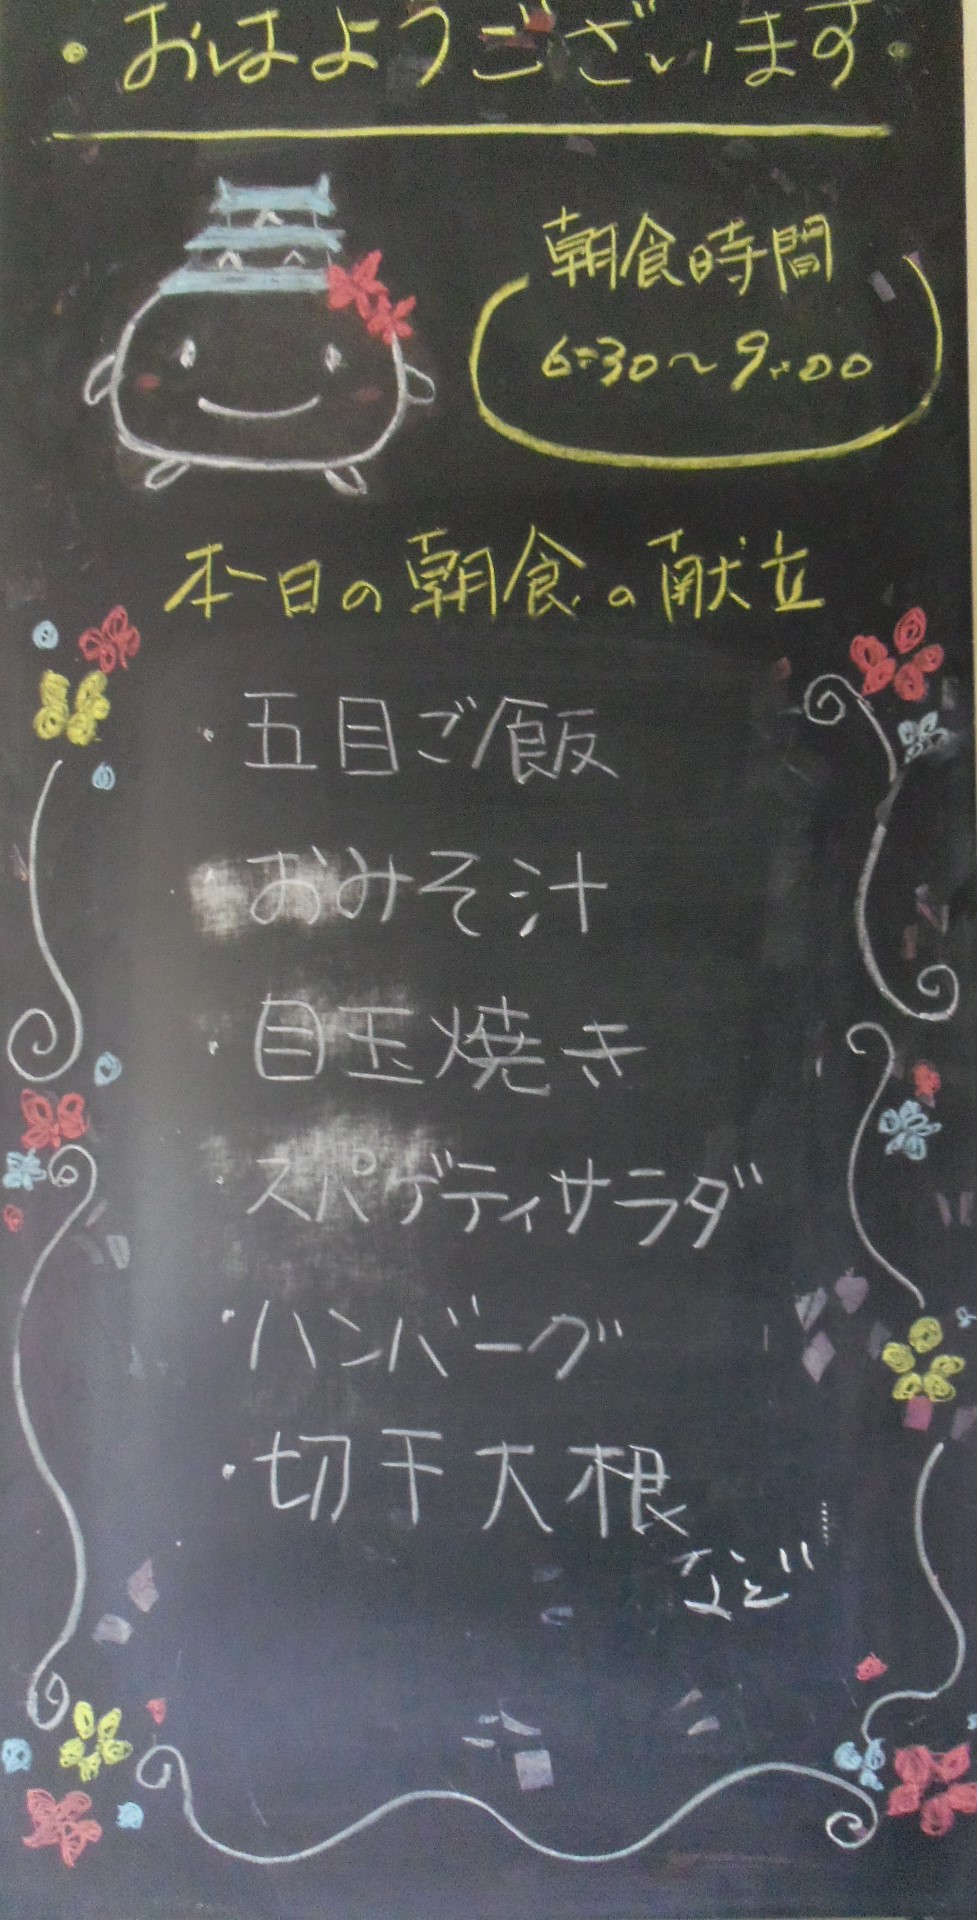 ・おはようございます・
朝食時間
6:30〜9:00
本日の朝食の献立
・五目ご飯
・おみそ汁
・目玉焼き
・スパゲティサラダ
・ハンバーグ
・切干大根
など